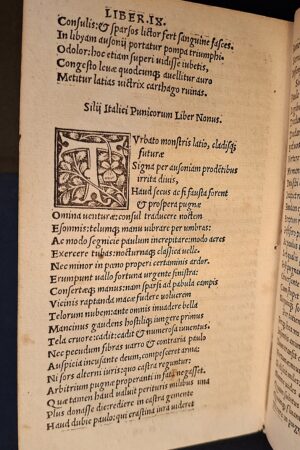 LIBER. IX.
Consulis: & sparsos lictor fert sanguine fasces.
In libyam ausonij portatur pompa triumphi.
O dolor: hoc etiam superi vidisse iubetis,
Congesto læuæ quodcunque auellitur auro
Metitur latias victrix carthago ruinas.
Silij Italici Punicorum Liber Nonus.
TVrbato monstris latio, cladisque
futuræ
Signa per ausoniam prodentibus
irrita diuis,
Haud secus ac si fausta forent
& prospera pugnæ
Omina uenturæ: consul traducere noctem
Exsomnis: telumque manu uibrare per umbras:
Ac modo segnicie paulum increpitare: modo acres
Exercere tubas nocturnaque classica uelle.
Nec minor in pœno properi certaminis ardor.
Erumpunt uallo fortuna urgente sinistra:
Consertæque manus: nam sparsi ad pabula campis
Vicinis raptanda macæ fudere uolucrem
Telorum nubem: ante omnis inuadere bella
Mancinus gaudens hostilique iungere primus
Tela cruore: cadit: cadit & numerosa iuuentus.
Nec pecudum fibras uarro & contraria paulo
Auspicia incusante deum, compesceret arma:
Ni sors alterni iuris: quo castra reguntur:
Arbitrium pugnæ properanti in fata negasset.
Quæ tamen haud ualuit perituris milibus una
Plus donasse die: rediere in castra gemente
Haud dubie paulo: qui crastina iura uideret